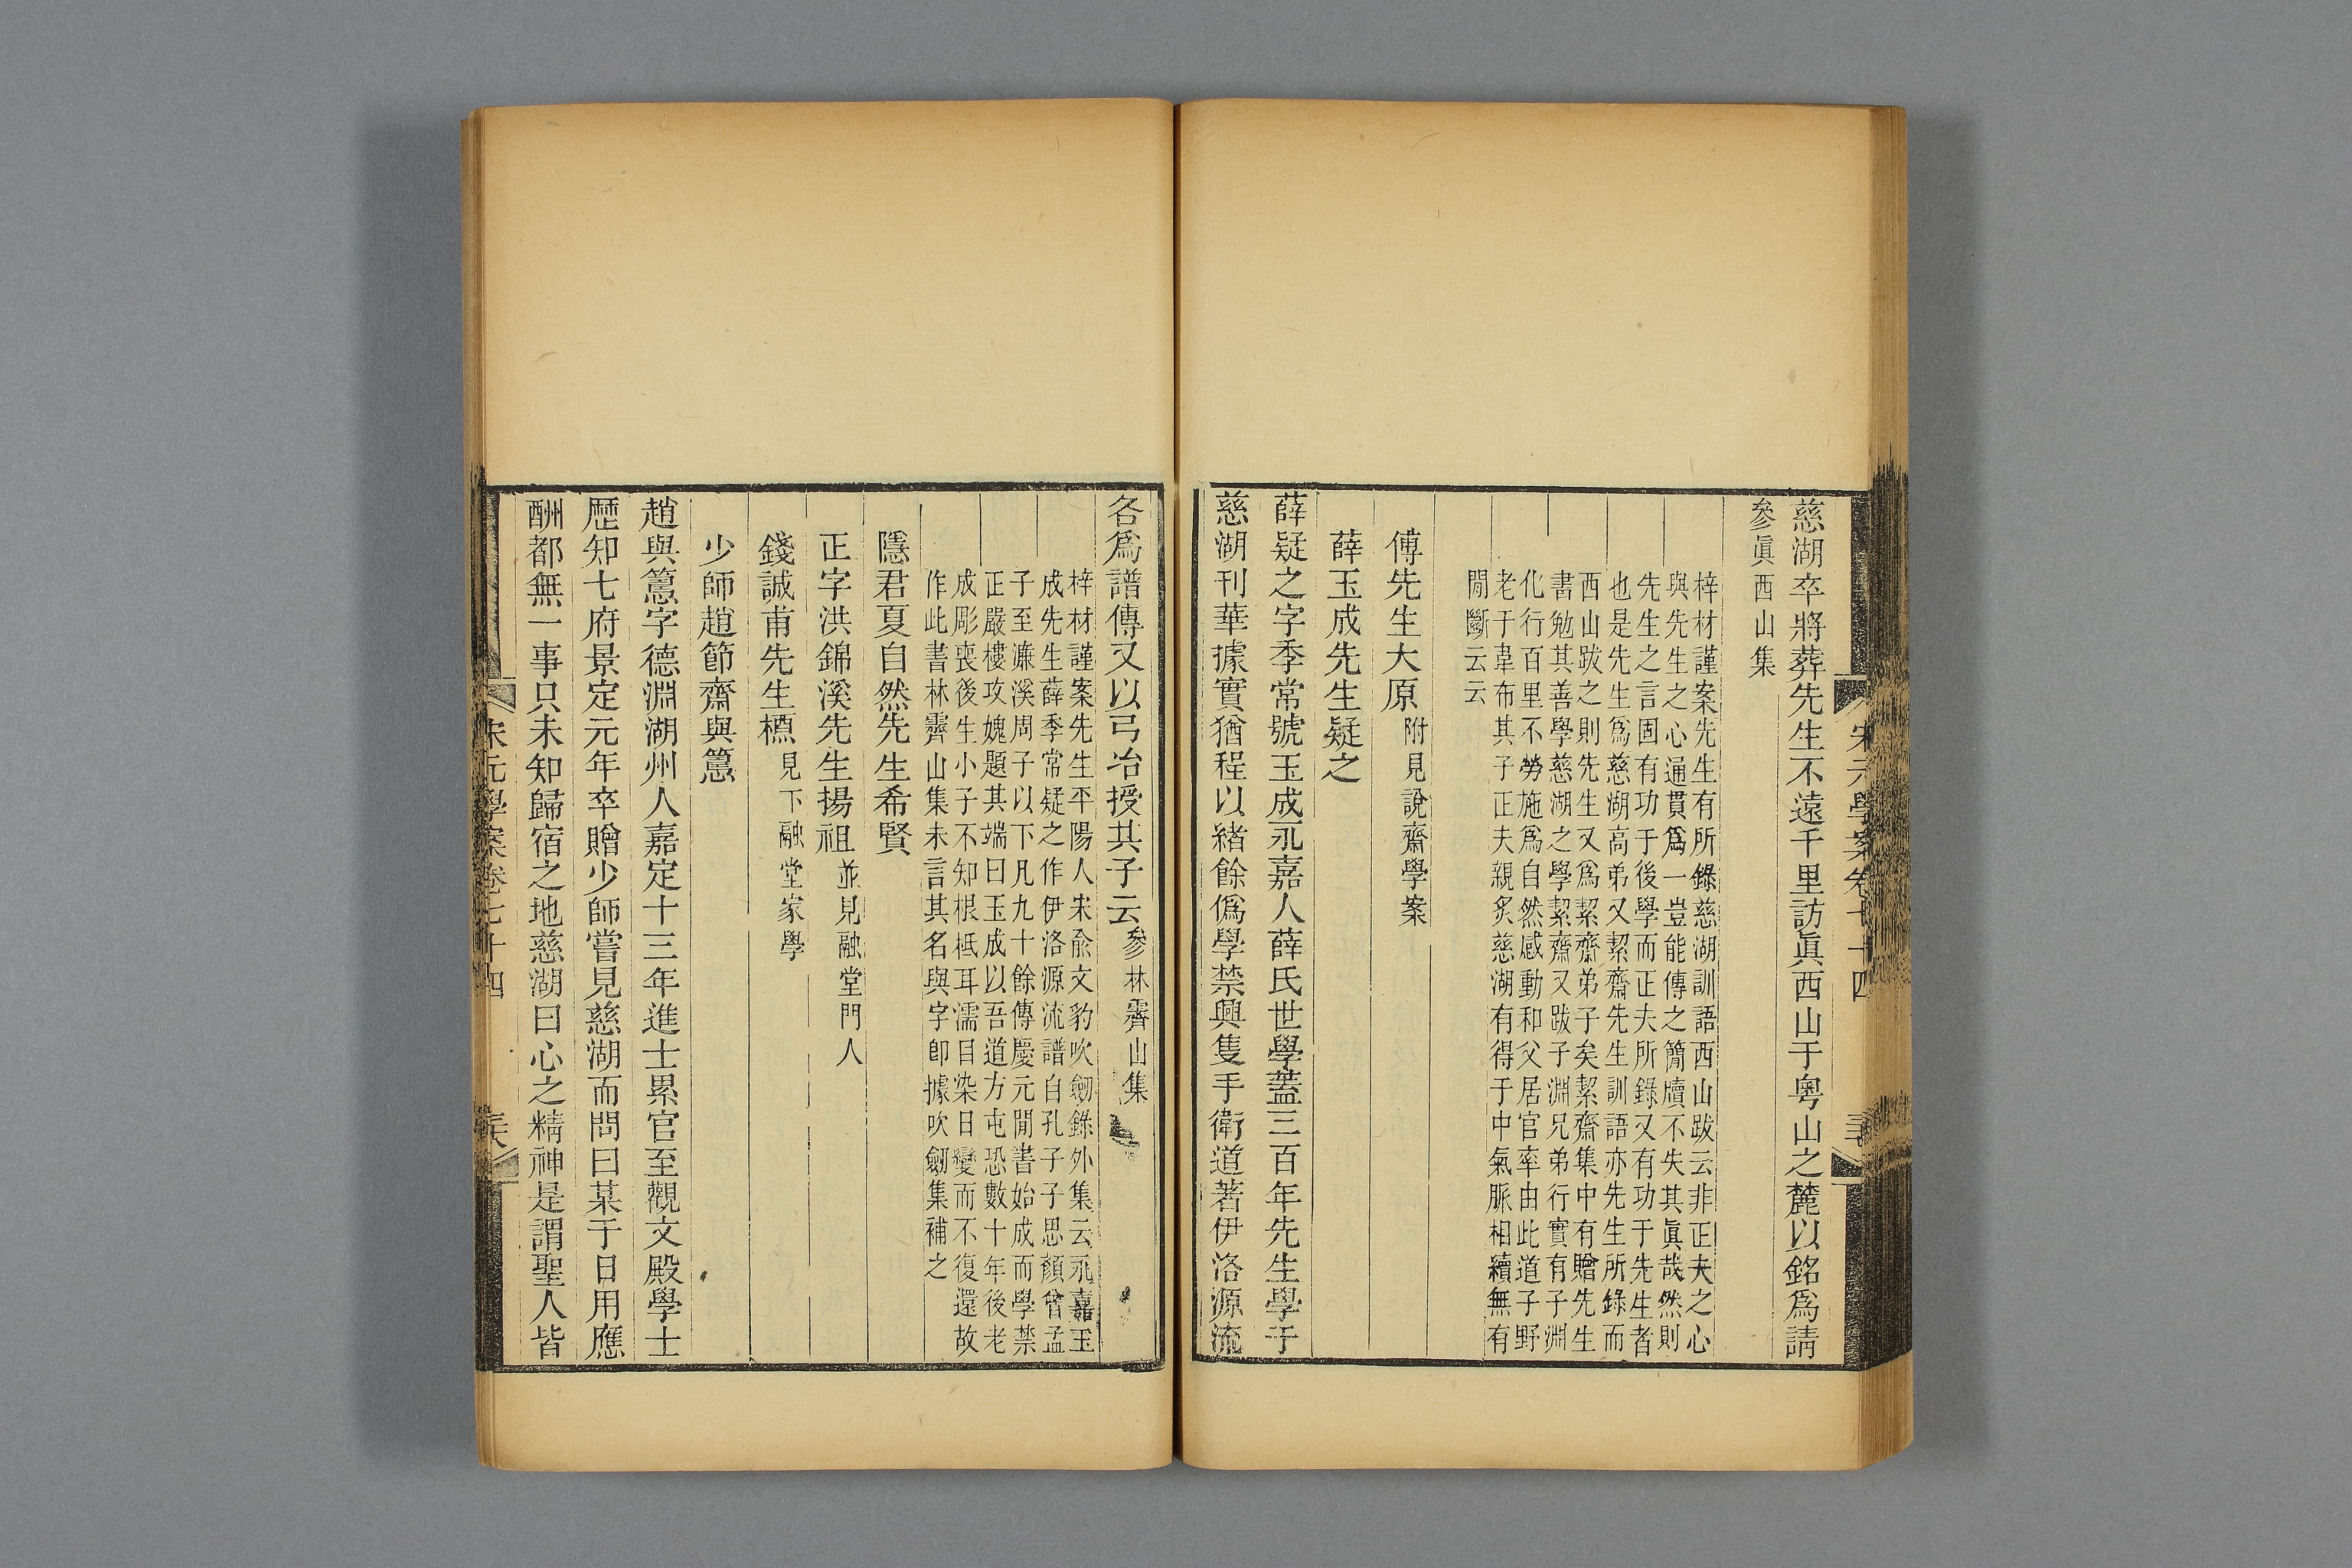 慈湖卒將葬先生不遠千里訪眞西山于粵山之麓以銘爲請
參眞西山集
梓材謹案先生有所錄慈湖訓語西山跋云非正夫之心
與先生之心通貫爲一豈能傳之簡牘不失其眞哉然則
先生之言固有功于後學而正夫所錄又有功于先生者
也是先生爲慈湖高弟又絜齋先生訓語亦先生所錄而
西山跋之則先生又爲絜齋弟子矣絜齋集中有贈先生
書勉其善學慈湖之學絜齋又跋子淵兄弟行實有子淵
化行百里不勞施爲自然感動和父居官率由此道子野
老于韋布其子正夫親炙慈湖有得于中氣脈相續無有
閒斷云云
傅先生大原附見說齋學案
薛玉成先生疑之
薛疑之字季常號玉成永嘉人薛氏世學蓋三百年先生學于
慈湖刊華據實猶程以緒餘僞學禁興隻手衛道著伊洛源流
各爲譜傳又以弓冶授其子云參林霽山集
梓材謹案先生平陽人宋兪文豹吹劒錄外集云永嘉玉
成先生薛季常疑之作伊洛源流譜自孔子子思顏曾孟
子至濂溪周子以下凡九十餘傳慶元閒書始成而學禁
正嚴樓攻媿題其端曰玉成以吾道方屯恐數十年後老
成彫喪後生小子不知根柢耳濡目染日變而不復還故
作此書林霽山集未言其名與字卽據吹劒集補之
隱君夏自然先生希賢
正字洪錦溪先生揚祖並見融堂門人
錢誠甫先生槱見下融堂家學
少師趙節齋與𥲅
趙與𥲅字德淵湖州人嘉定十三年進士累官至觀文殿學士
歷知七府景定元年卒贈少師嘗見慈湖而問曰某于日用應
酬都無一事只未知歸宿之地慈湖曰心之精神是謂聖人皆
宋元學案卷七十四